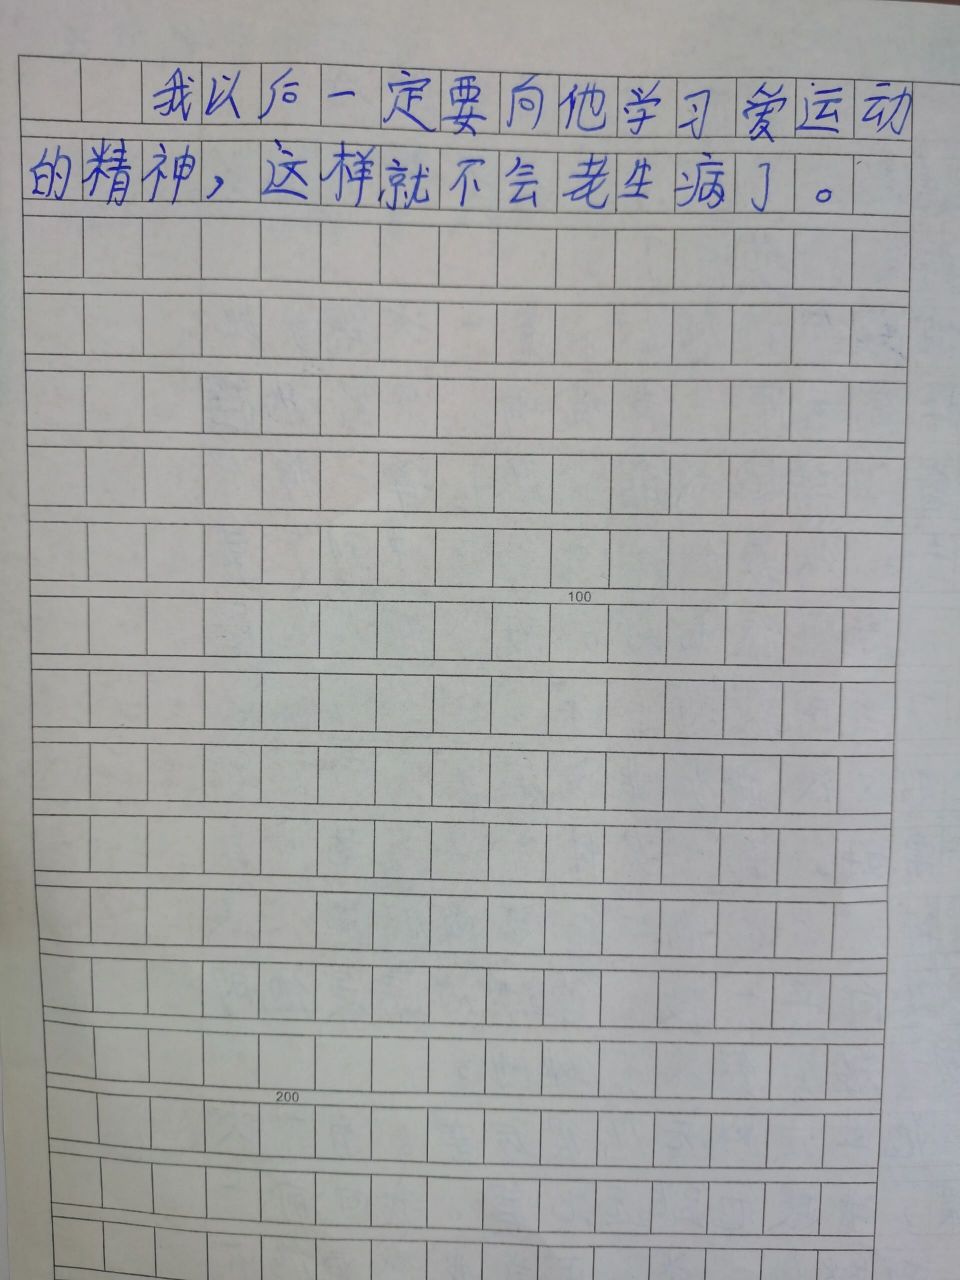 我以后一定要向他学习爱运动
的精神，这样就不会老生病了。
100
200